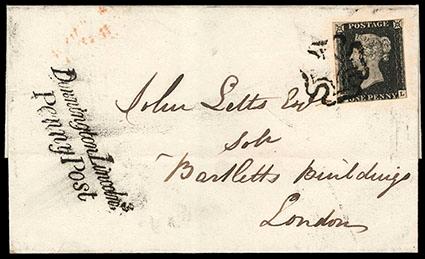 POSTAGE
ONE PENNY
L
Donnington Lincolns
Penny Post
John Letts Esqr
Solr
Bartletts Buildings
London